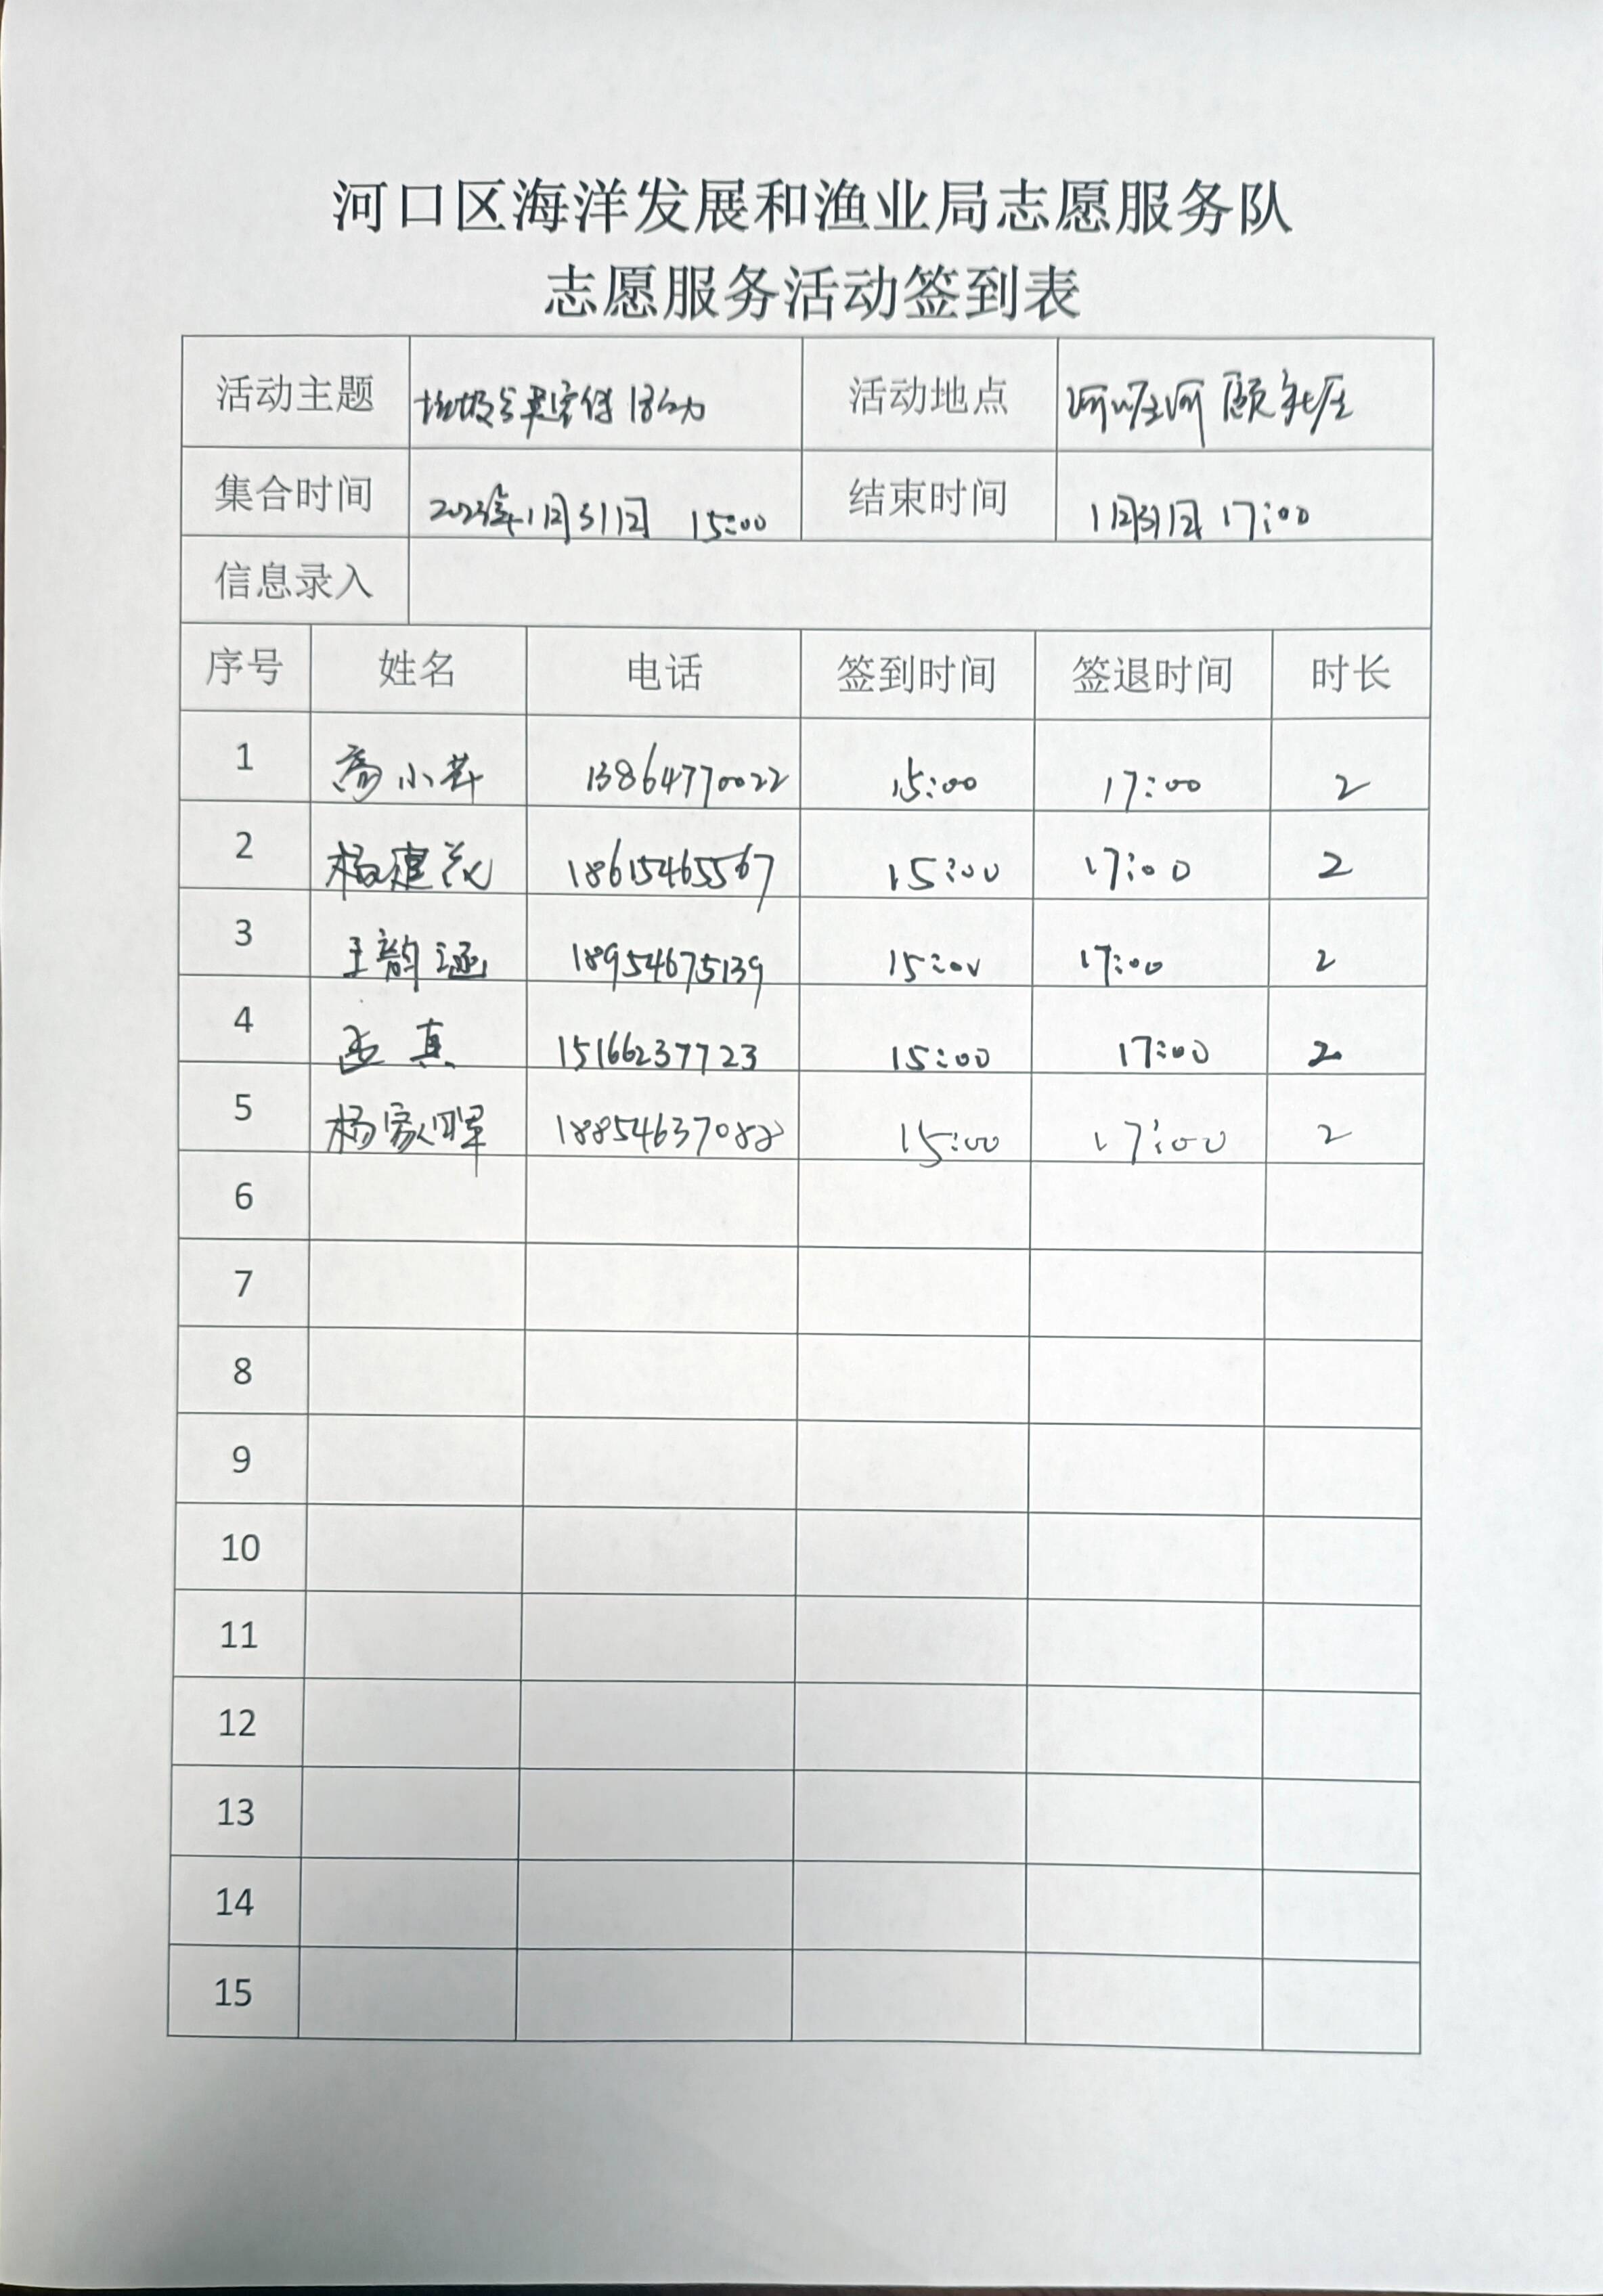 河口区海洋发展和渔业局志愿服务队
志愿服务活动签到表
活动主题 垃圾分类宣传活动 活动地点 河口区河颐社区
集合时间 2023年1月31日 15:00 结束时间 1月31日 17:00
信息录入
序号 姓名 电话 签到时间 签退时间 时长
1 高小 13864770022 15:00 17:00 2
2 杨建 18615465567 15:00 17:00 2
3 王韵涵 18954675139 15:00 17:00 2
4 真 15166237723 15:00 17:00 2
5 杨家晖 18854637088 15:00 17:00 2
6
7
8
9
10
11
12
13
14
15